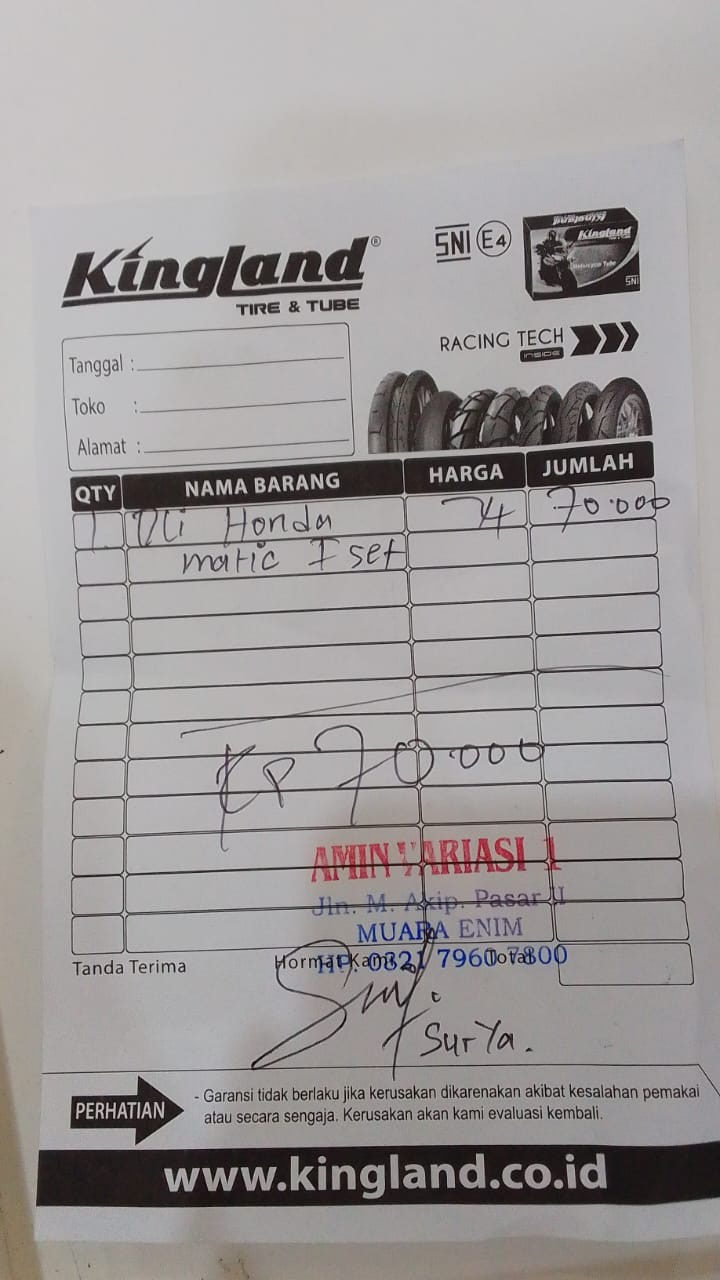 Kingland®
TIRE & TUBE
SNI E4
Kingland
Kingland
Motorcycle Tube
SNI
RACING TECH
INSIDE
Tanggal :
Toko :
Alamat :
QTY NAMA BARANG HARGA JUMLAH
1 Oli Honda 70.000
matic I set
Rp 70.000
AMIN VARIASI 1
Jln. M. Akip. Pasar II
MUARA ENIM
HP. 0821 7960 7800
Tanda Terima Hormat Kami Total
Surya.
PERHATIAN
- Garansi tidak berlaku jika kerusakan dikarenakan akibat kesalahan pemakai
atau secara sengaja. Kerusakan akan kami evaluasi kembali.
www.kingland.co.id